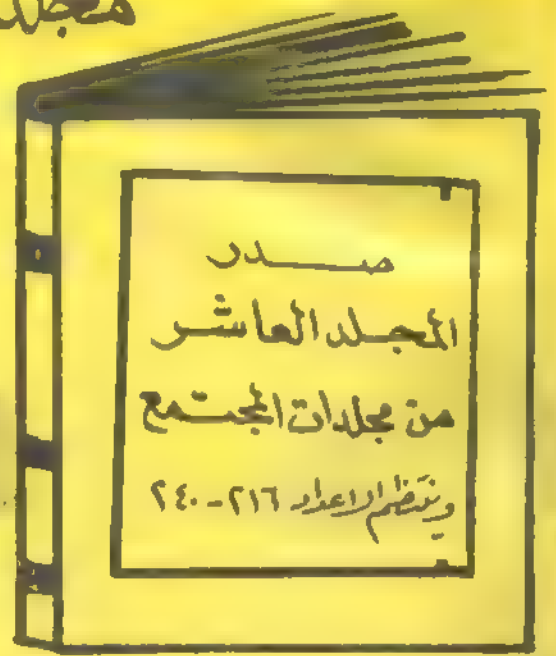 صدر
المجلد العاشر
من مجلدات المجتمع
وينتظم الاعداد ٢١٦-٢٤٠